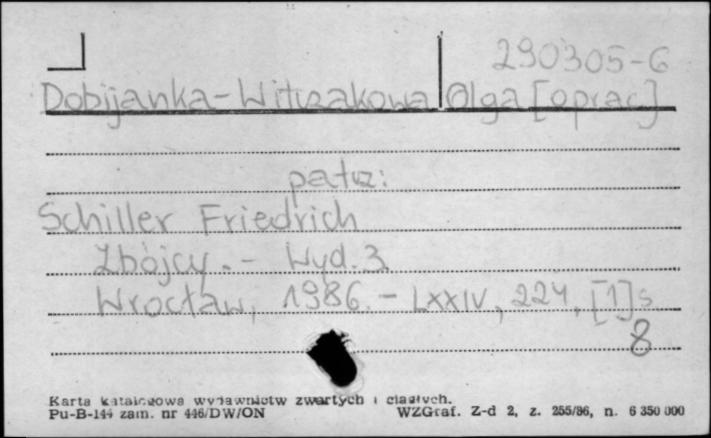 290305-G
Dobijanka-Witczakowa Olga [oprac]
patrz:
Schiller Friedrich
Zbójcy. - Wyd. 3
Wrocław, 1986. - LXXIV, 224, [1]s
8
Karta katalogowa wydawnictw zwartych i ciągłych.
Pu-B-144 zam. nr 446/DW/ON WZGraf. Z-d 2, z. 255/86, n. 6 350 000